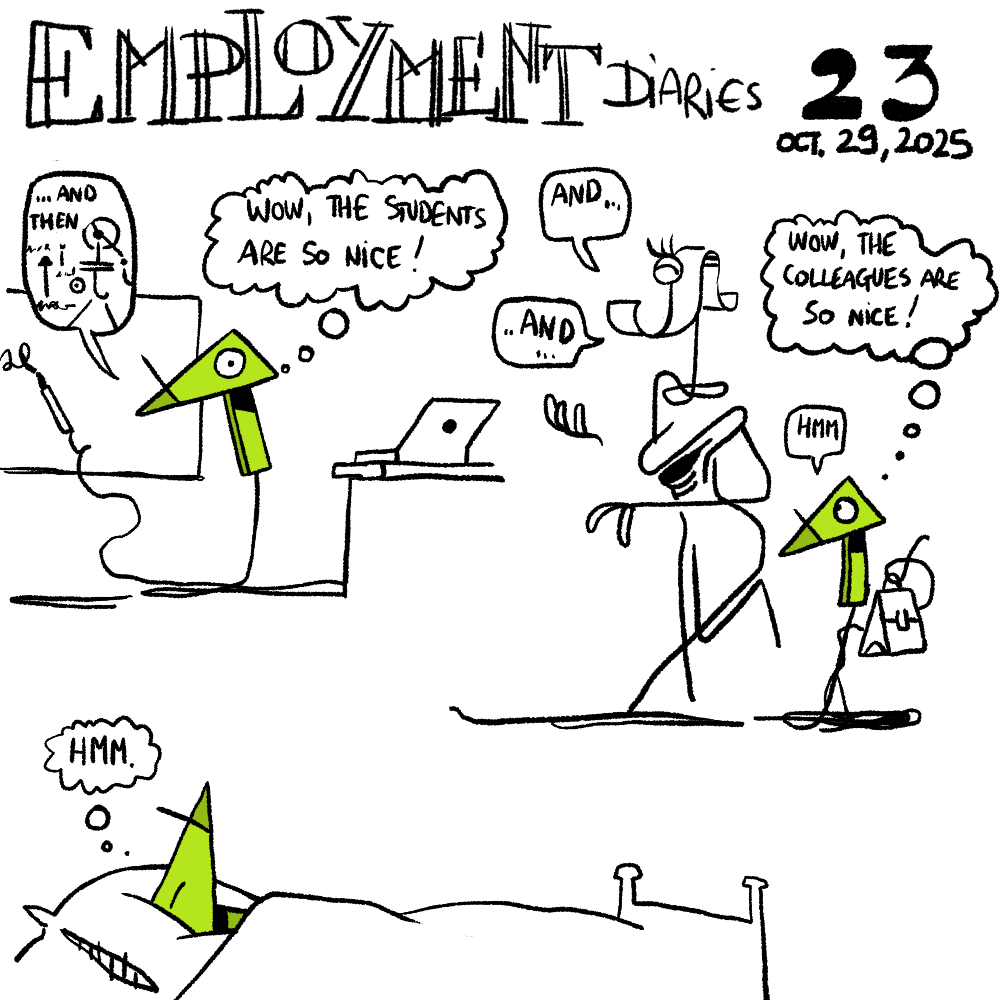 EMPLOYMENT DIARIES 23
OCT. 29, 2025
... AND
THEN
WOW, THE STUDENTS
ARE SO NICE!
AND...
.. AND
...
WOW, THE
COLLEAGUES ARE
SO NICE!
HMM
HMM.